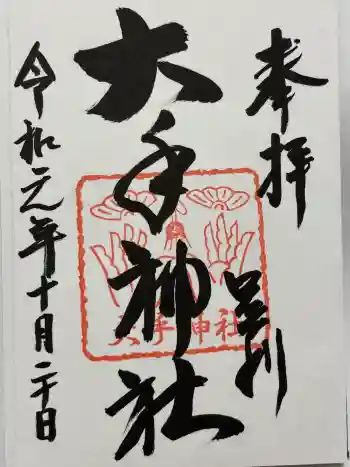 奉拝
足利
大手神社
令和元年十月二十日
大手神社